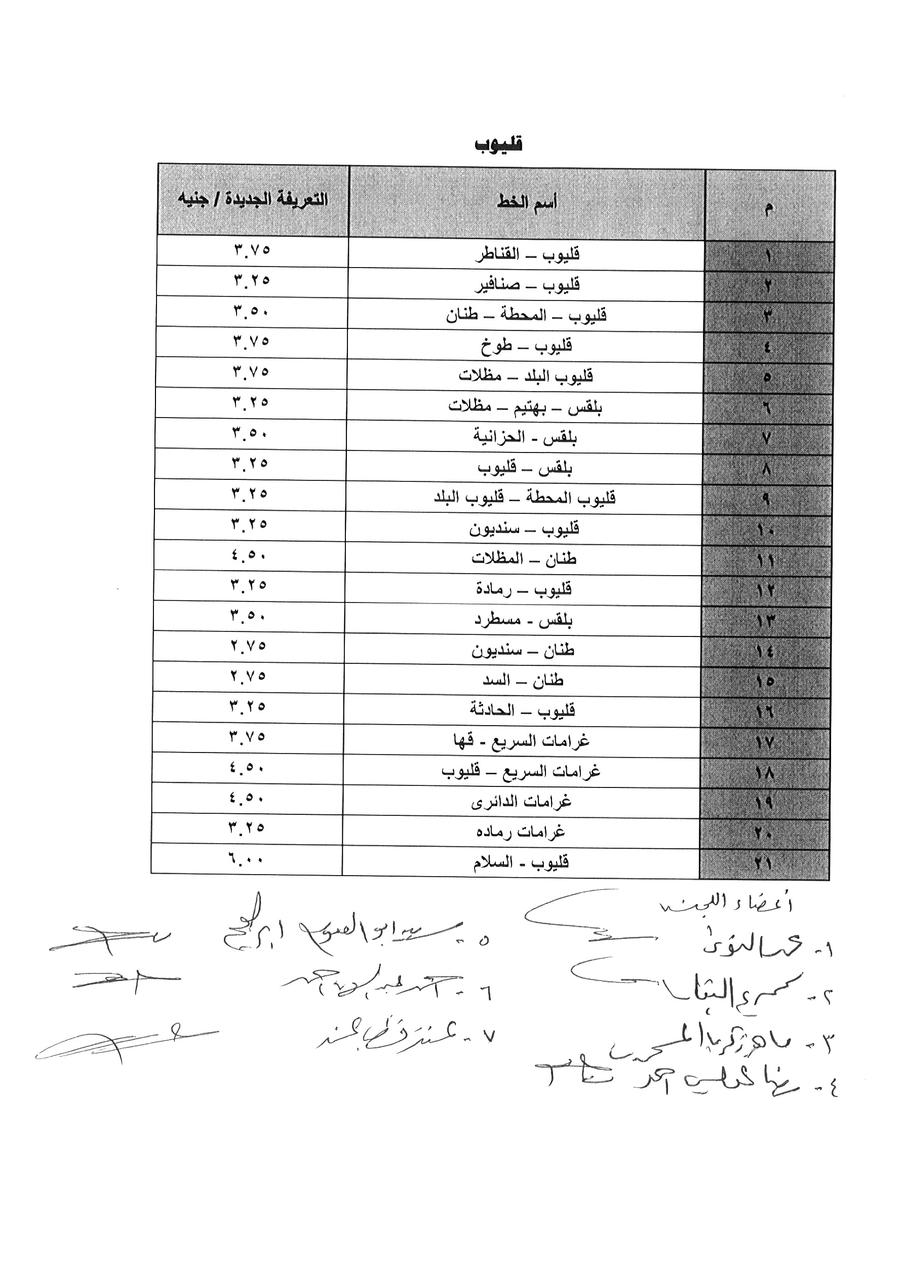 قليوب
م أسم الخط التعريفة الجديدة / جنيه
١ قليوب – القناطر ٣.٧٥
٢ قليوب – صنافير ٣.٢٥
٣ قليوب – المحطة – طنان ٣.٥٠
٤ قليوب – طوخ ٣.٧٥
٥ قليوب البلد – مظلات ٣.٧٥
٦ بلقس – بهتيم – مظلات ٣.٢٥
٧ بلقس - الحزانية ٣.٥٠
٨ بلقس – قليوب ٣.٢٥
٩ قليوب المحطة – قليوب البلد ٣.٢٥
١٠ قليوب – سنديون ٣.٢٥
١١ طنان – المظلات ٤.٥٠
١٢ قليوب – رمادة ٣.٢٥
١٣ بلقس - مسطرد ٣.٥٠
١٤ طنان – سنديون ٢.٧٥
١٥ طنان – السد ٢.٧٥
١٦ قليوب – الحادثة ٣.٢٥
١٧ غرامات السريع - قها ٣.٧٥
١٨ غرامات السريع – قليوب ٤.٥٠
١٩ غرامات الدائرى ٤.٥٠
٢٠ غرامات رماده ٣.٢٥
٢١ قليوب - السلام ٦.٠٠
أعضاء اللجنه
١-
٢-
٣- ماهر زكريا
٤- رضا احمد
٥- سيد ابو
٦- احمد
٧-